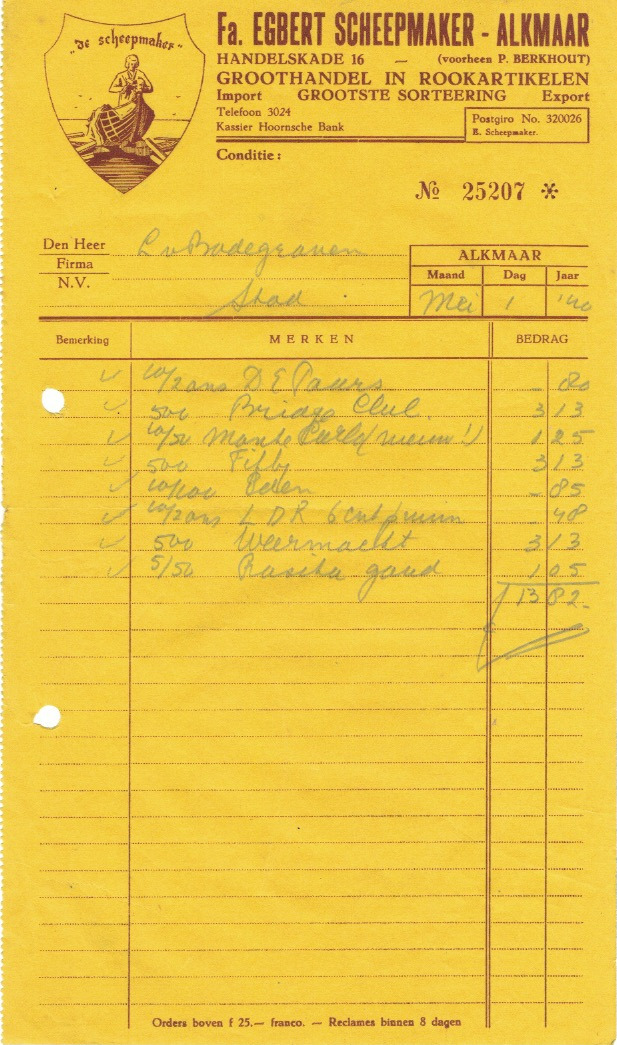 "de scheepmaker"
Fa. EGBERT SCHEEPMAKER - ALKMAAR
HANDELSKADE 16 — (voorheen P. BERKHOUT)
GROOTHANDEL IN ROOKARTIKELEN
Import GROOTSTE SORTEERING Export
Telefoon 3024
Kassier Hoornsche Bank
Postgiro No. 320026
E. Scheepmaker.
Conditie:
No 25207 *
Den Heer
Firma
N.V.
L v Bodegraven
Stad
ALKMAAR
Maand Dag Jaar
Mei 1 '40
Bemerking MERKEN BEDRAG
10/2 ons D E Paars - 80
500 Bridge Club. 3 13
10/50 Monte Carlo (nieuw!) 1 25
500 Fifty 3 13
10/100 Eden - 85
10/2 ons L D R 6 cnt pruim - 48
500 Weermacht 3 13
5/50 goud 1 05
13 82.-
Orders boven f 25.— franco. — Reclames binnen 8 dagen